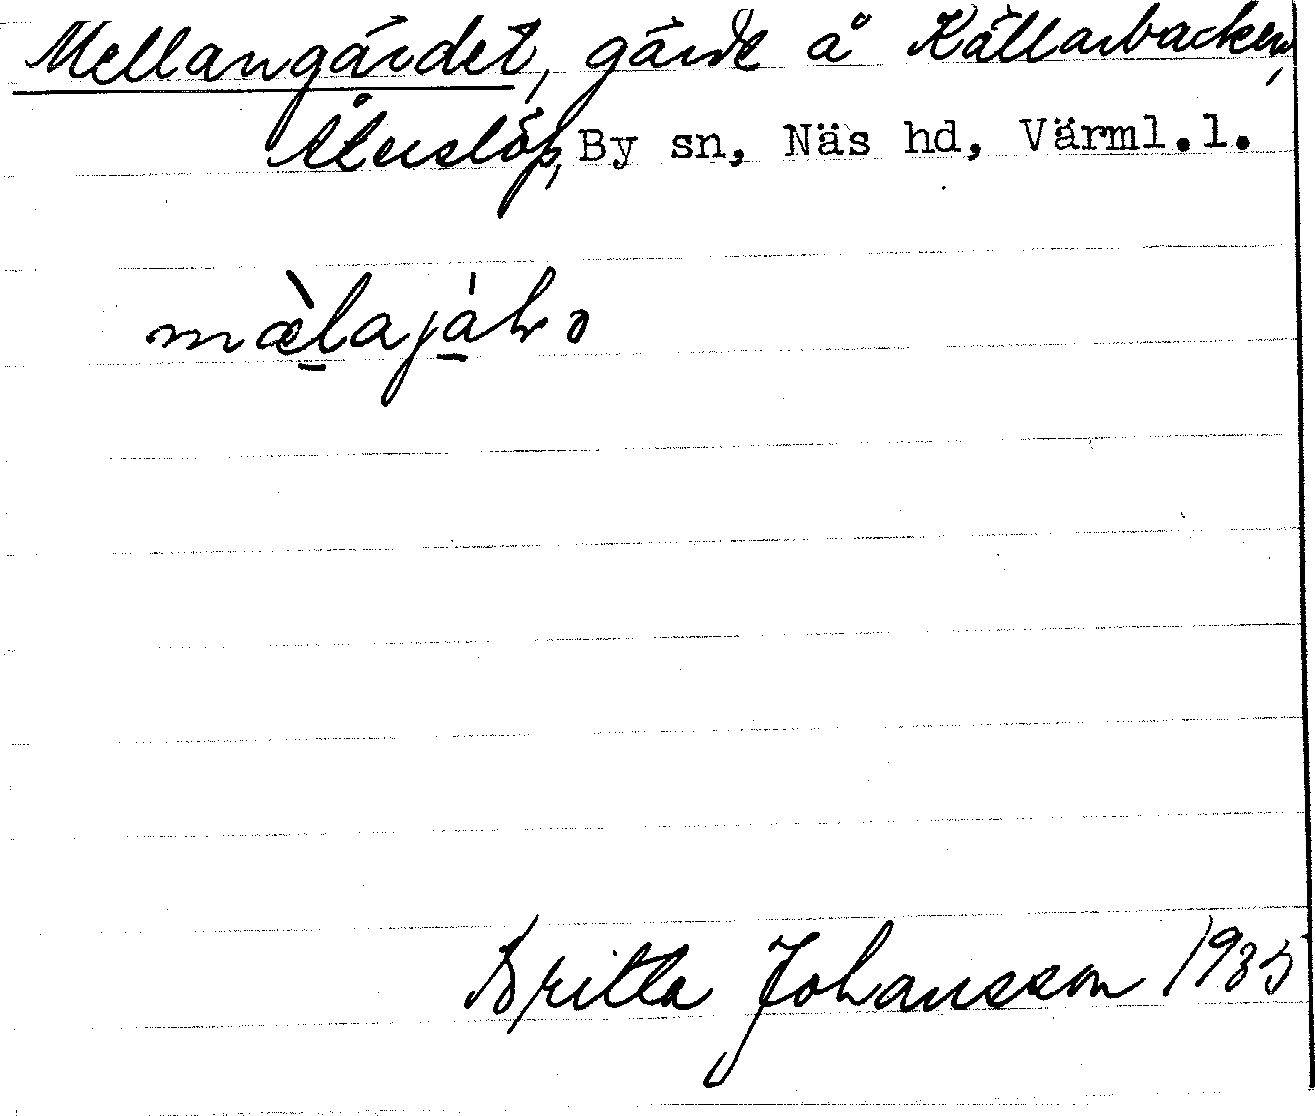 Mellangärdet, gärde å Källarbacken,
Ålerslöp, By sn, Näs hd, Värml.l.
Britta Johansson 1935